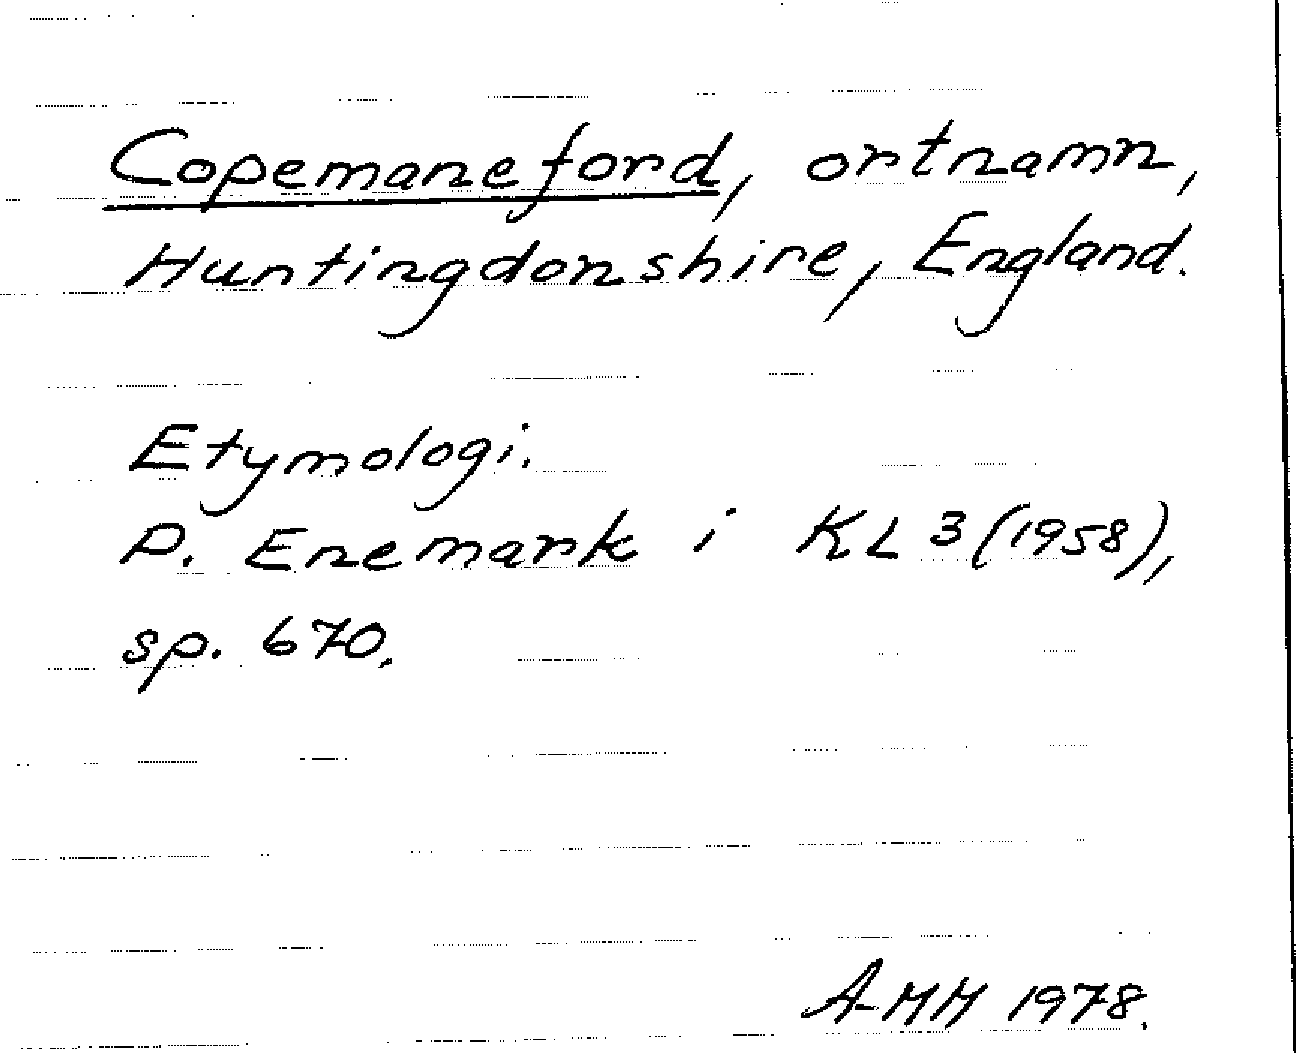 Copemaneford, ortnamn,
Huntingdonshire, England.
Etymologi.
P. Enemark i KL 3 (1958),
sp. 670.
AMM 1978.